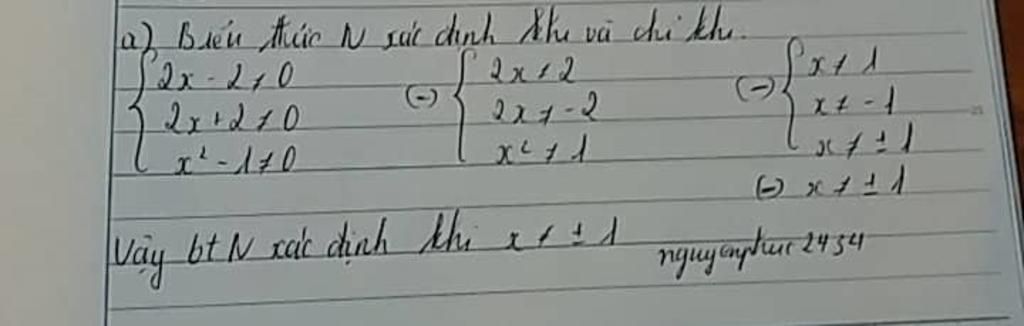 a) Biểu thức N xác định khi và chỉ khi.
2x - 2 ≠ 0 (=) 2x ≠ 2 (=) x ≠ 1
2x + 2 ≠ 0 2x ≠ -2 x ≠ -1
x² - 1 ≠ 0 x² ≠ 1 x ≠ ± 1
(=) x ≠ ± 1
Vậy bt N xác định khi x ≠ ± 1
nguyenphuc2434